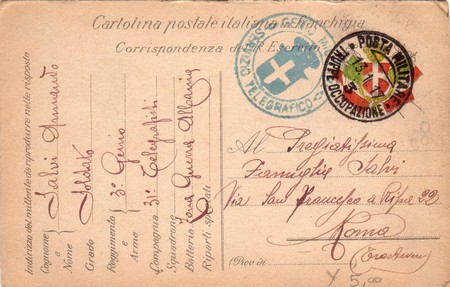 Cartolina postale italiana in franchigia
Corrispondenza del R. Esercito
GENIO MIL
TELEGRAFICO
POSTA MILITARE
TRUPPE OCCUPAZIONE
Indirizzo del mittente da riprodurre nelle risposte
Cognome e Nome Salvi Armando
Grado Soldato
Reggimento e Arma 3° Genio
Compagnia 31ª Telegrafisti
Squadrone
Batteria Zona Guerra Albania
Riparti speciali
Al Pregiatissima
Famiglia Salvi
Via San Francesco a Ripa 32
Roma
(Prov. di (Trastevere)
5,00